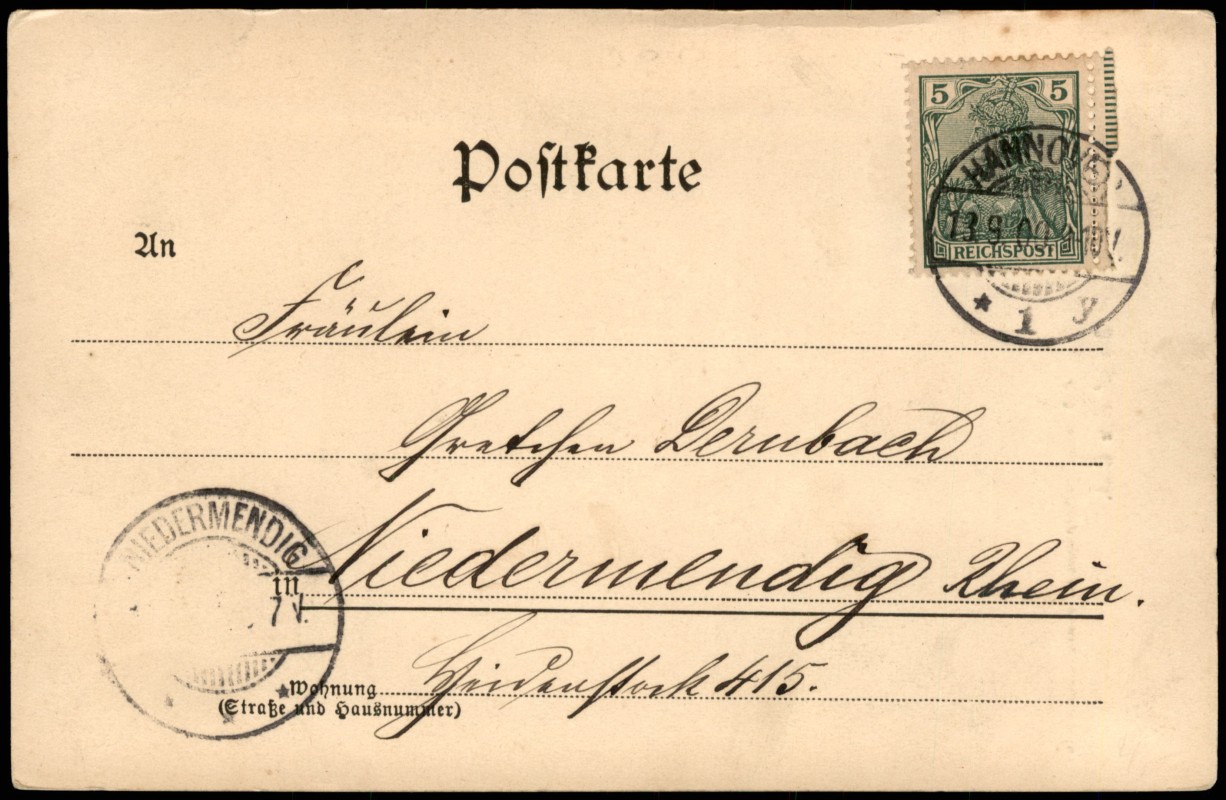 5 5
REICHSPOST
HANNOVER
13.9.00 10V.
* 1 y
Postkarte
An
Fräulein
Gretchen Dernbach
NIEDERMENDIG
7 V.
in Niedermendig Rhein.
Wohnung
(Straße und Hausnummer)
Heidenstock 415.